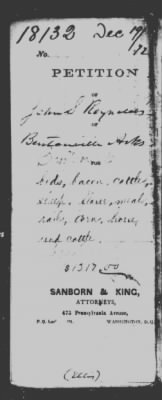 18132 Dec 19/72
No.
PETITION
OF
John S. Reynolds
OF
Bentonville Arks
FOR
beds, bacon, cattle,
sheep, flour, meal,
rails, corn, horse,
and cattle.
$1317.00
SANBORN & KING,
ATTORNEYS,
475 Pennsylvania Avenue,
WASHINGTON, D.C.